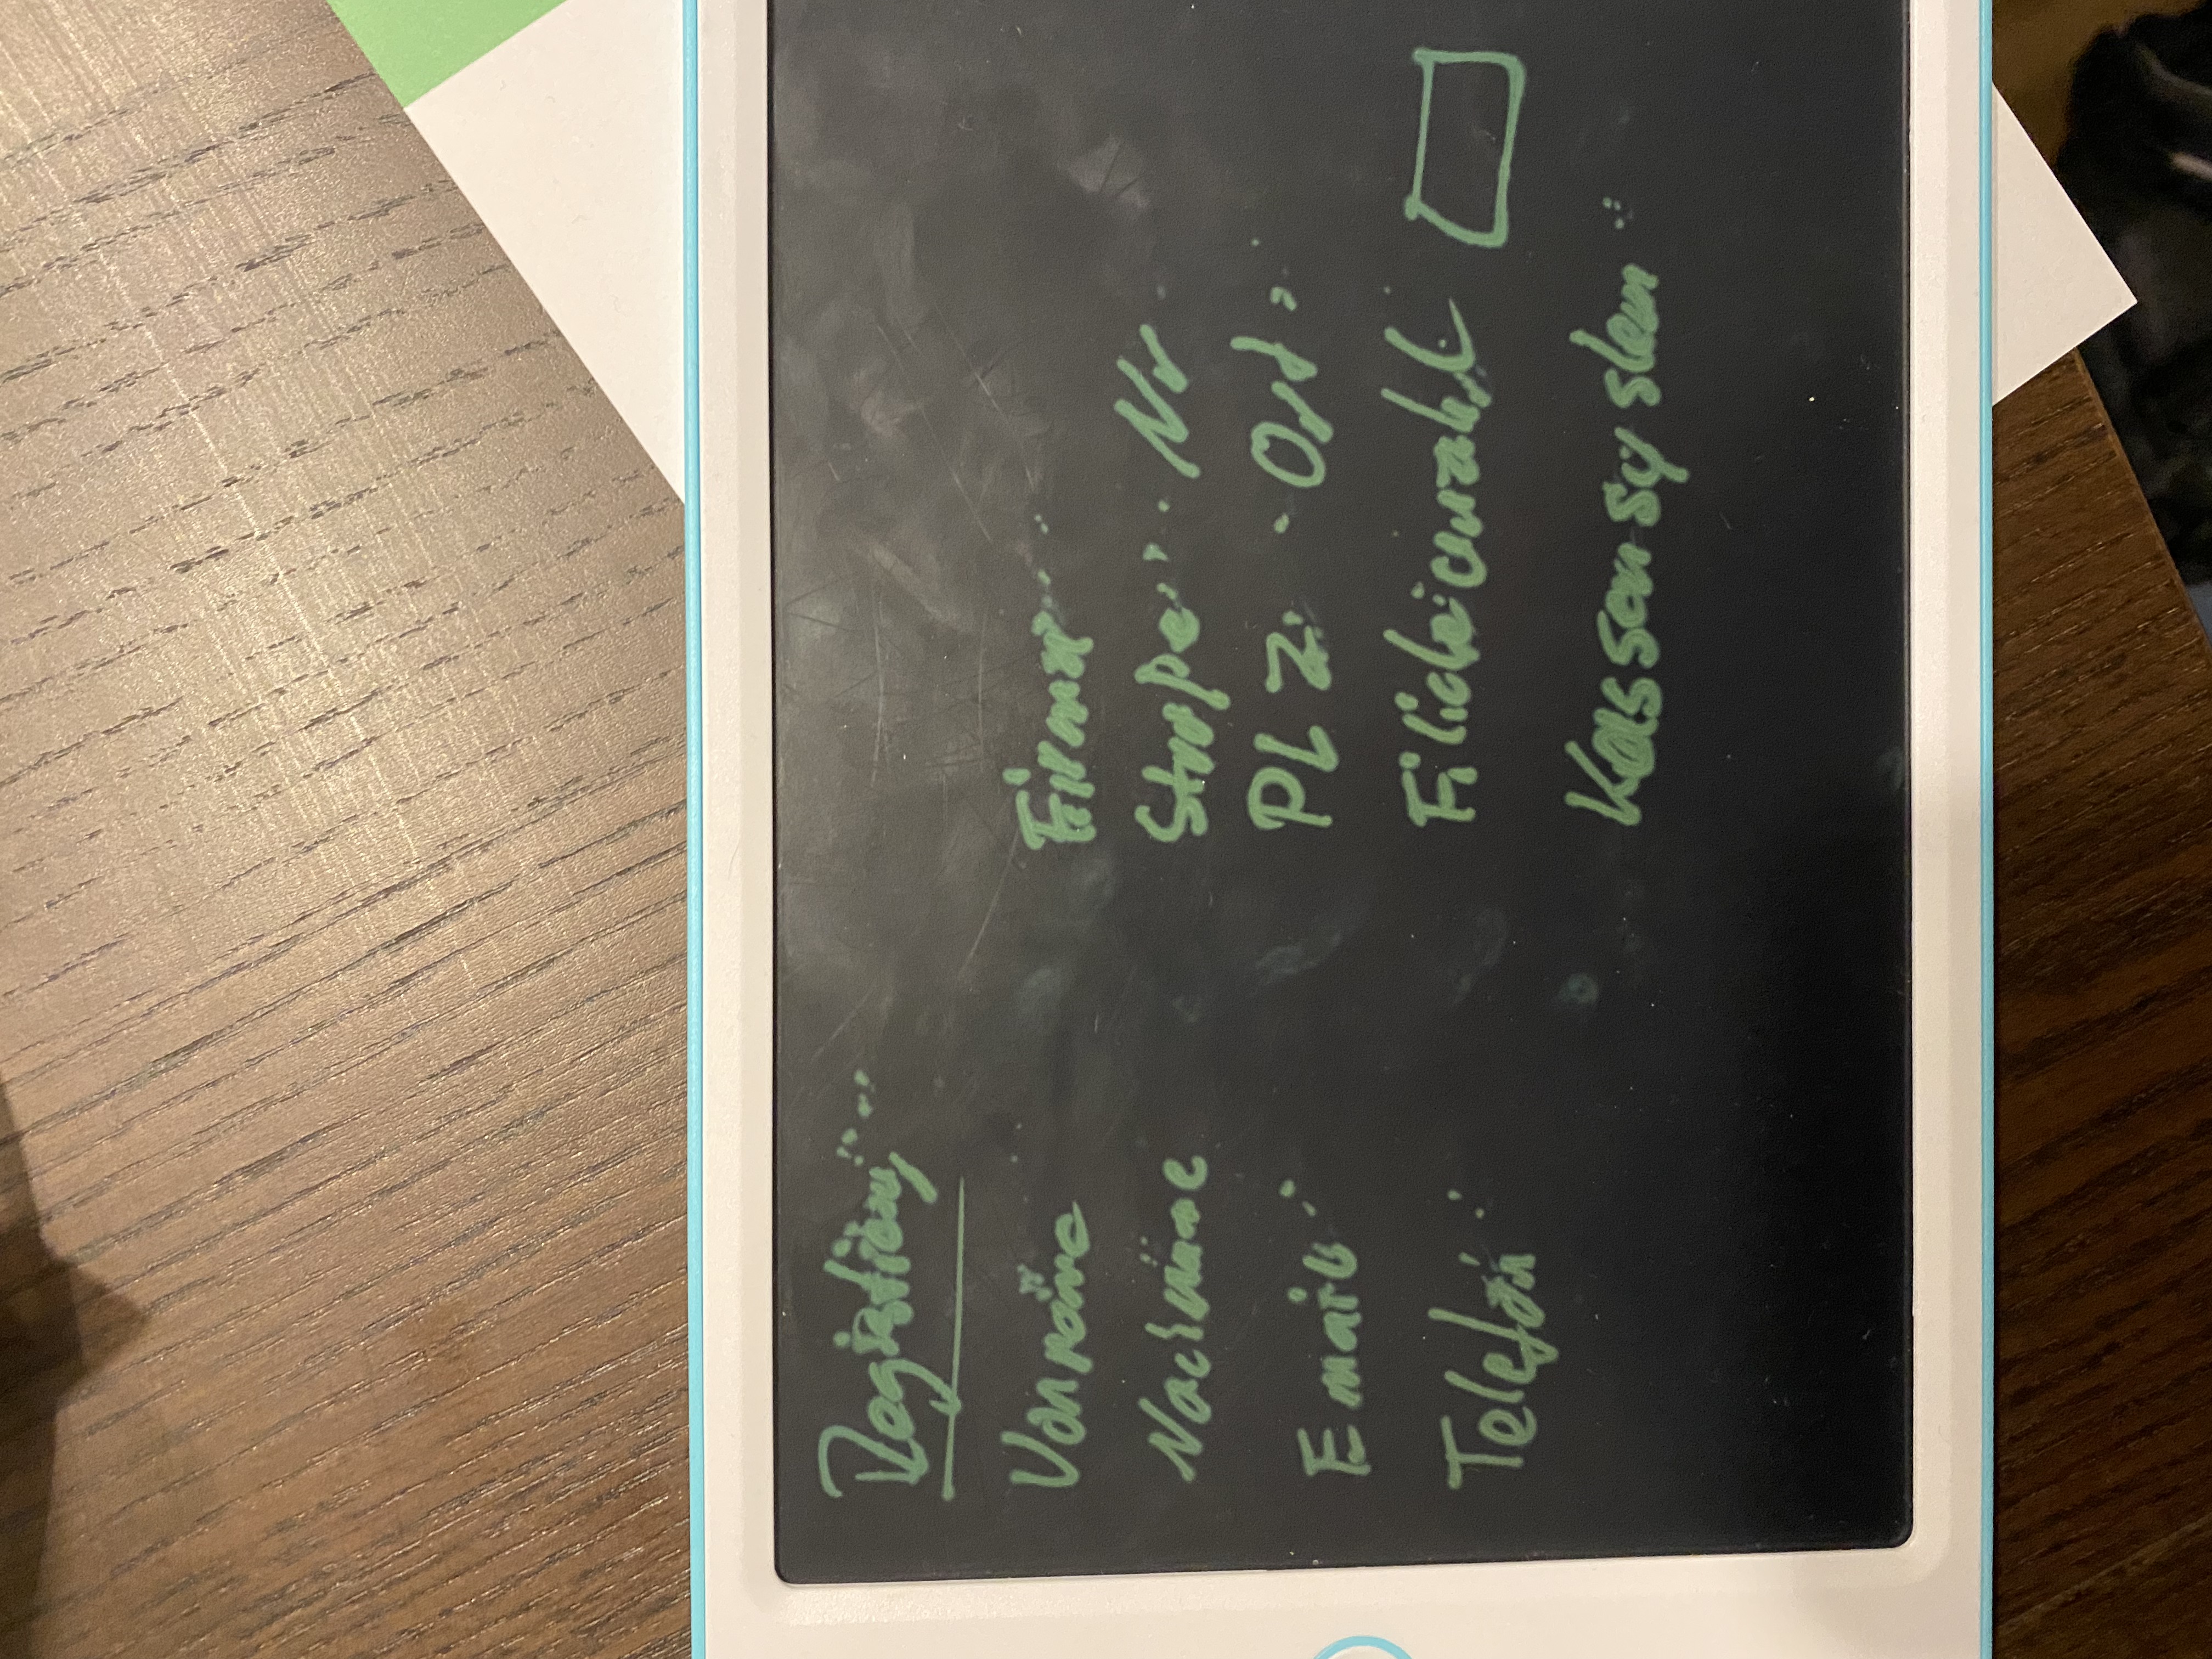 Registrierung
Vorname
Nachname
Email
Telefon
Firma
Straße Nr
PLZ Ort
Filialenanzahl
Kassensystem